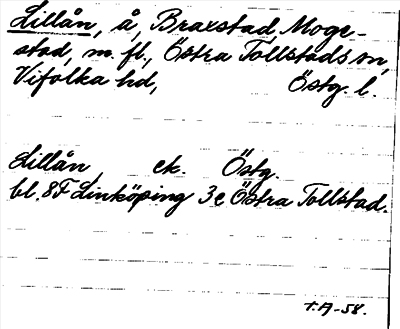 Lillån, å, Braxstad, Moge-
stad, m. fl., Östra Tollstads sn,
Vifolka hd, Östg. l.
Lillån, ek. Östg.
bl. 8F Linköping 3e Östra Tollstad.
T.A-58.